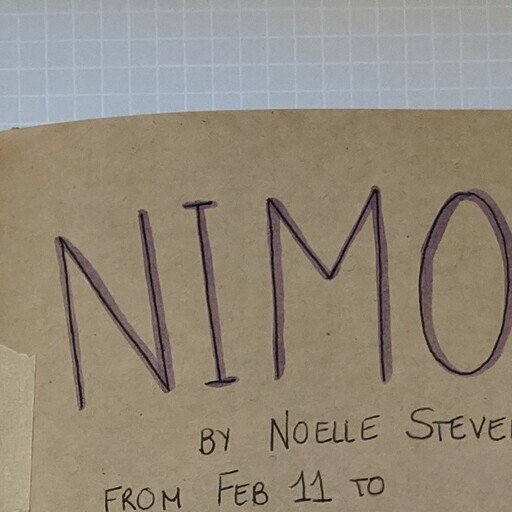 NIMO
BY NOELLE STEVE
FROM FEB 11 TO